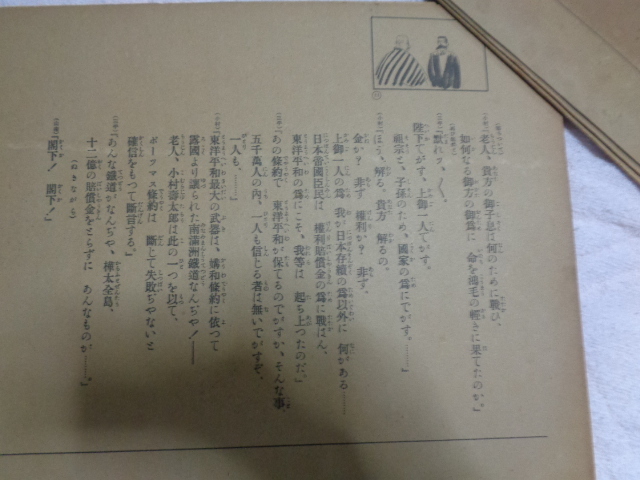 『老人、貴方の御子息は何のために戰ひ、
如何なる御方の御爲に 命を鴻毛の輕きに果てたのか。』
『默れツ、
陛下でがす。上御一人でがす。
祖宗と、子孫のため、國家の爲にでがす。……』
『ほう、解る。貴方 解るの。
金か? 非ず 權利か? 非ず。
上御一人の爲 我が日本存續の爲以外に 何がある……
日本帝國臣民は 權利賠償金の爲に戰はん、
東洋平和の爲にこそ、我等は 起ち上つたのだ。』
『あの條約で 東洋平和が保てるのでがすか、そんな事、
五千萬人の内、一人も信じる者は無いでがすぞ。
一人も、……』
『東洋平和最大の武器は、媾和條約に依つて
露國より讓られた南滿洲鐵道なんぢや!――
老人、小村壽太郎は此の一つを以て、
ポーツマス條約は 斷じて失敗ぢやないと
確信をもつて斷言する。』
『あんな鐵道がなんぢや、樺太全島、
十二億の賠償金をとらずに あんなものが――。』
(ぬきながら)
『閣下! 閣下!』